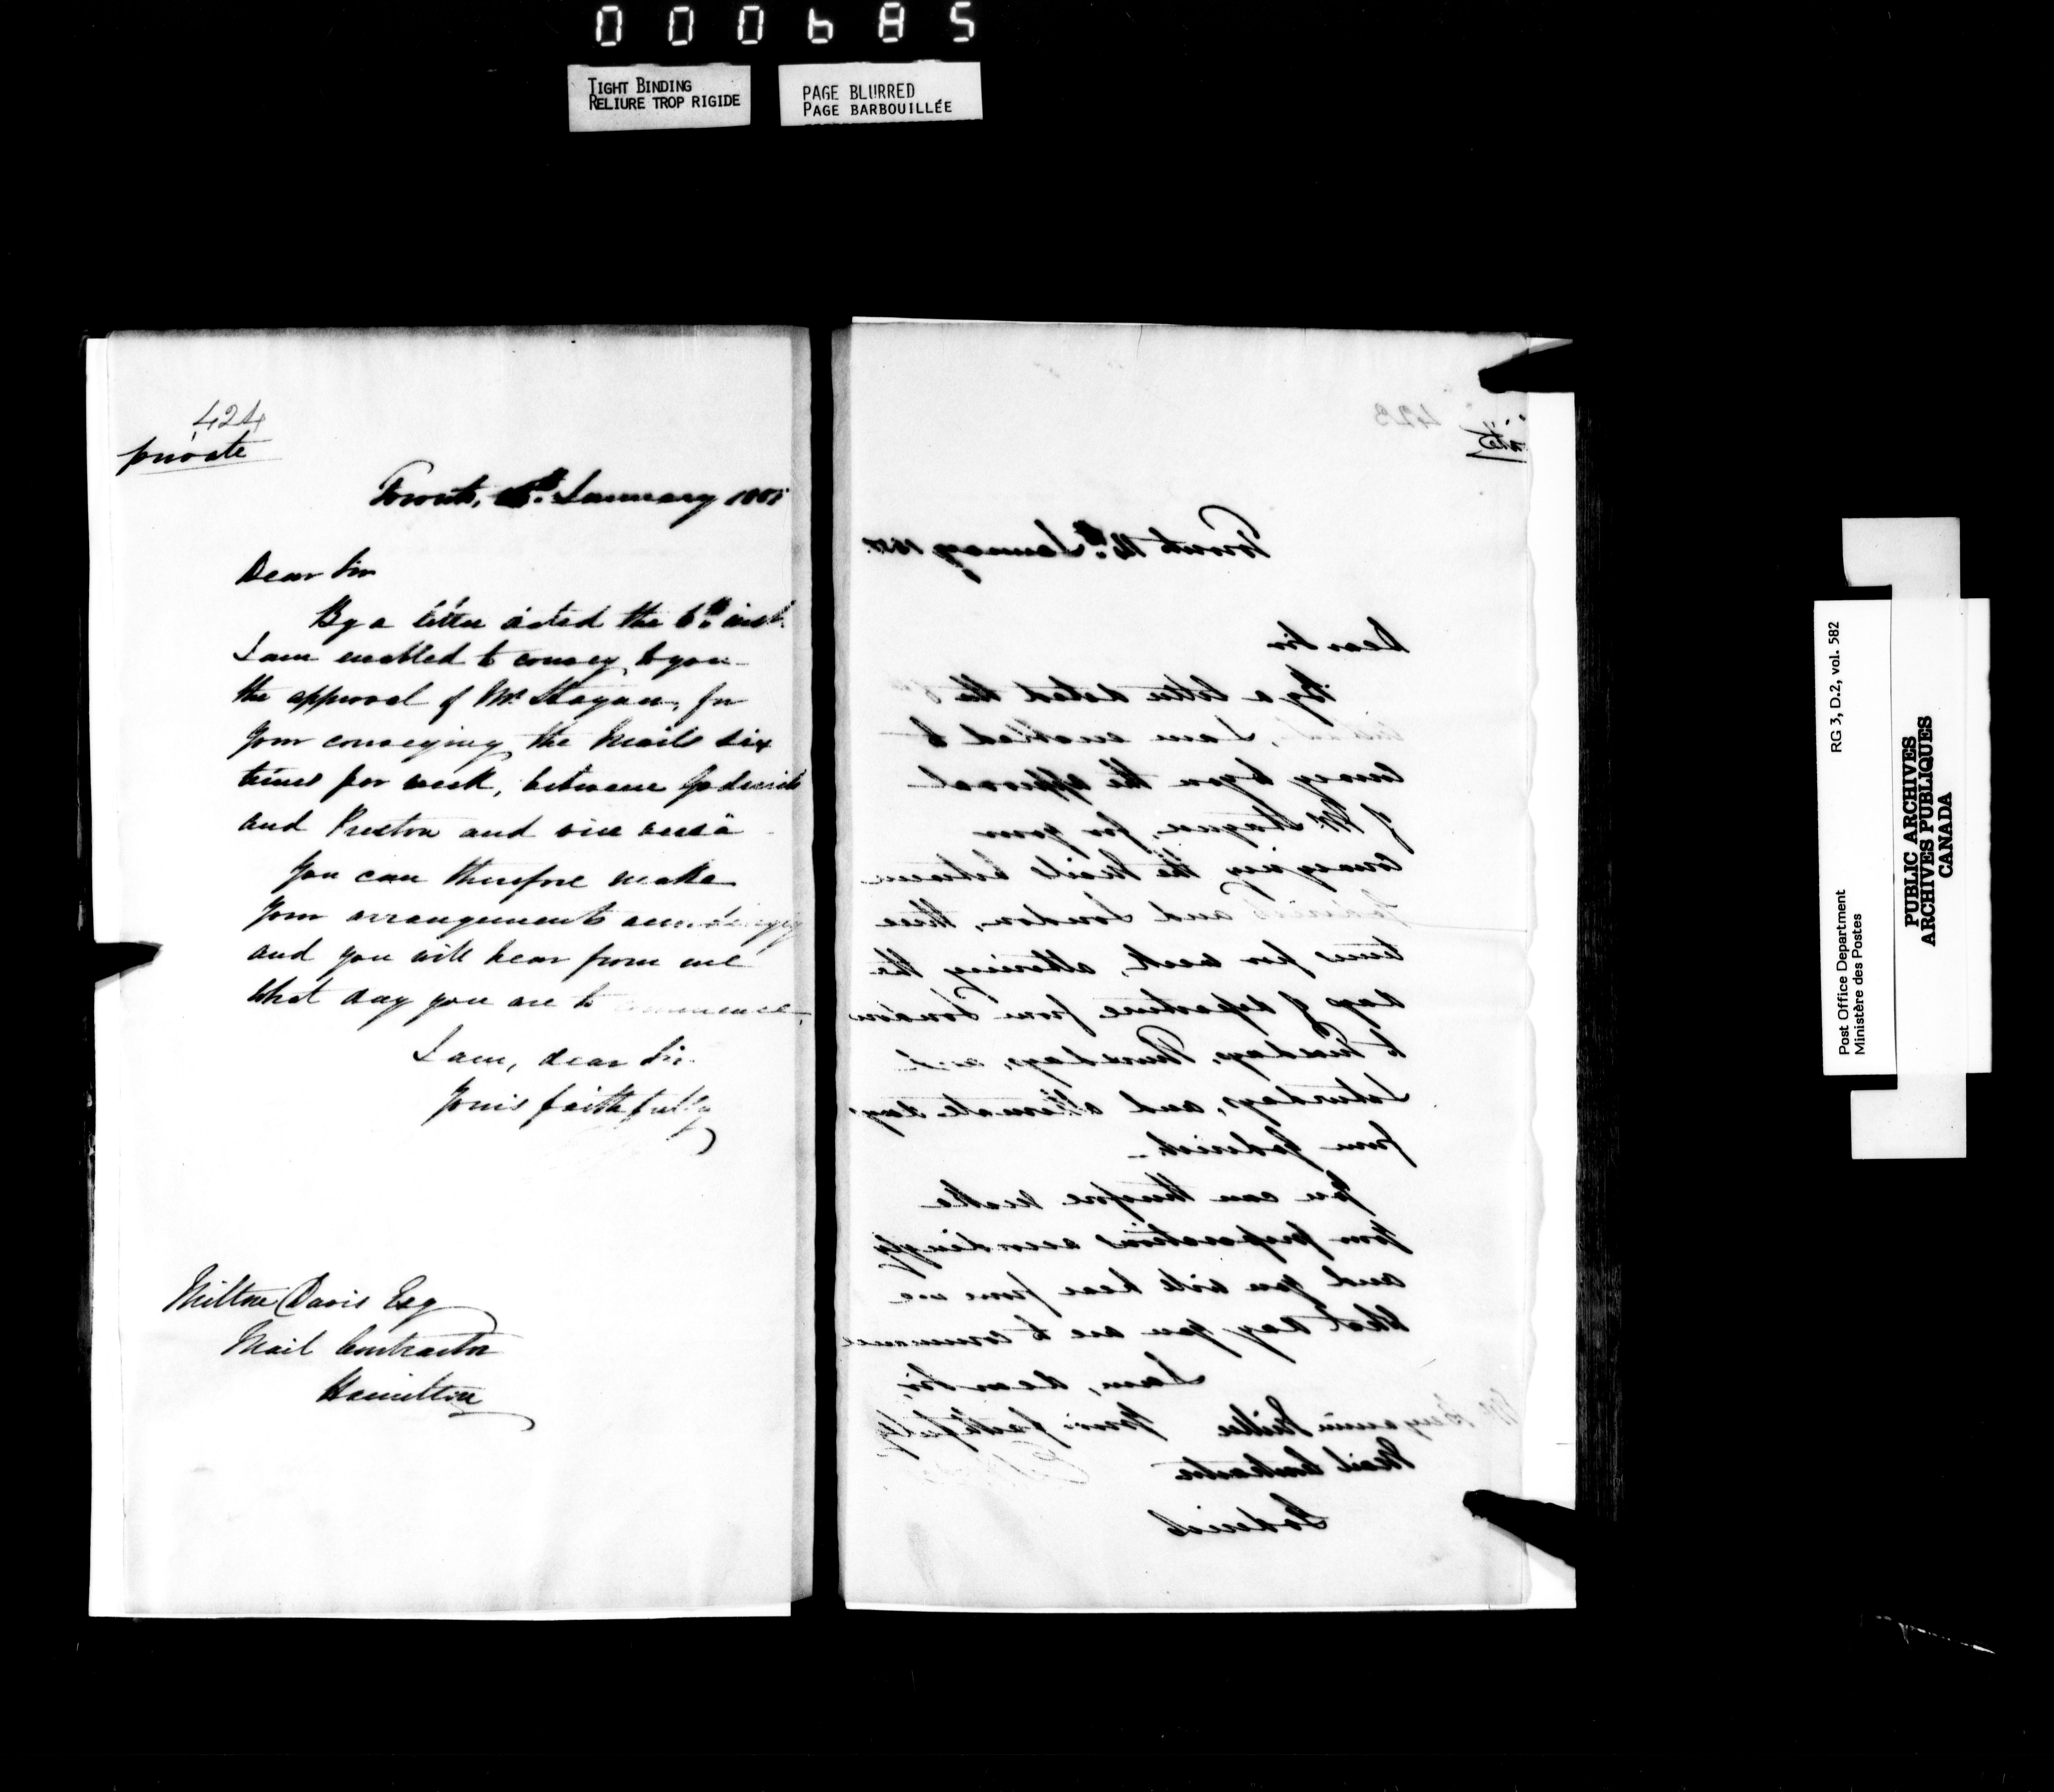 000685
TIGHT BINDING
RELIURE TROP RIGIDE
PAGE BLURRED
PAGE BARBOUILLÉE
424
private
Toronto, January
Dear Sir
By a letter dated the 6th inst.
I am enabled to convey to you
the approval of Mr Stayner, for
your conveying the Mails six
times per week, between Goderich
and Preston and vice versâ
You can therefore make
your arrangements accordingly
and you will hear from me
what day you are to commence.
I am, dear Sir.
Yours faithfully
Milton Davis Esq
Mail Contractor
Hamilton
423
Toronto January
Dear Sir
By a letter dated the
I am enabled to
convey to you the approval
of Mr Stayner, for your
conveying the Mails between
Goderich and London, three
times per week, altering the
days of departure from London
to Tuesdays, Thursdays, and
Saturdays, and alternate days
from Goderich.
You can therefore make
your preparations accordingly
and you will hear from me
what day you are to commence
I am, dear Sir,
Yours faithfully
Mr Benjamin
Mail Contractor
Goderich
Post Office Department RG 3, D.2, vol. 582
Ministère des Postes
PUBLIC ARCHIVES
ARCHIVES PUBLIQUES
CANADA